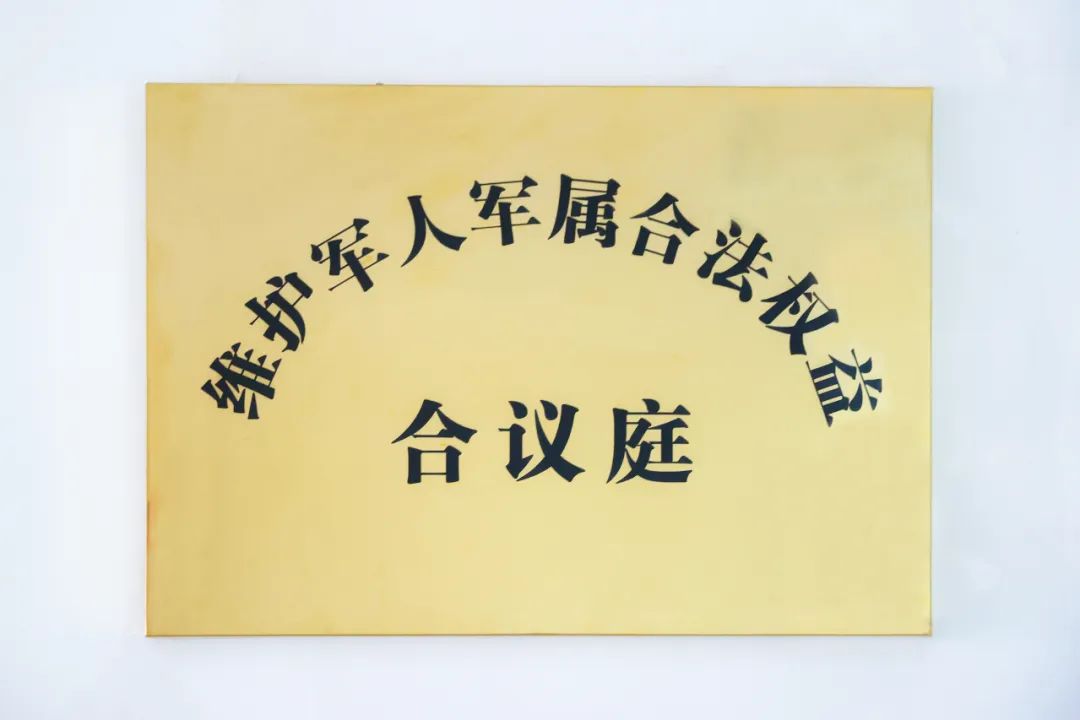 维护军人军属合法权益
合议庭